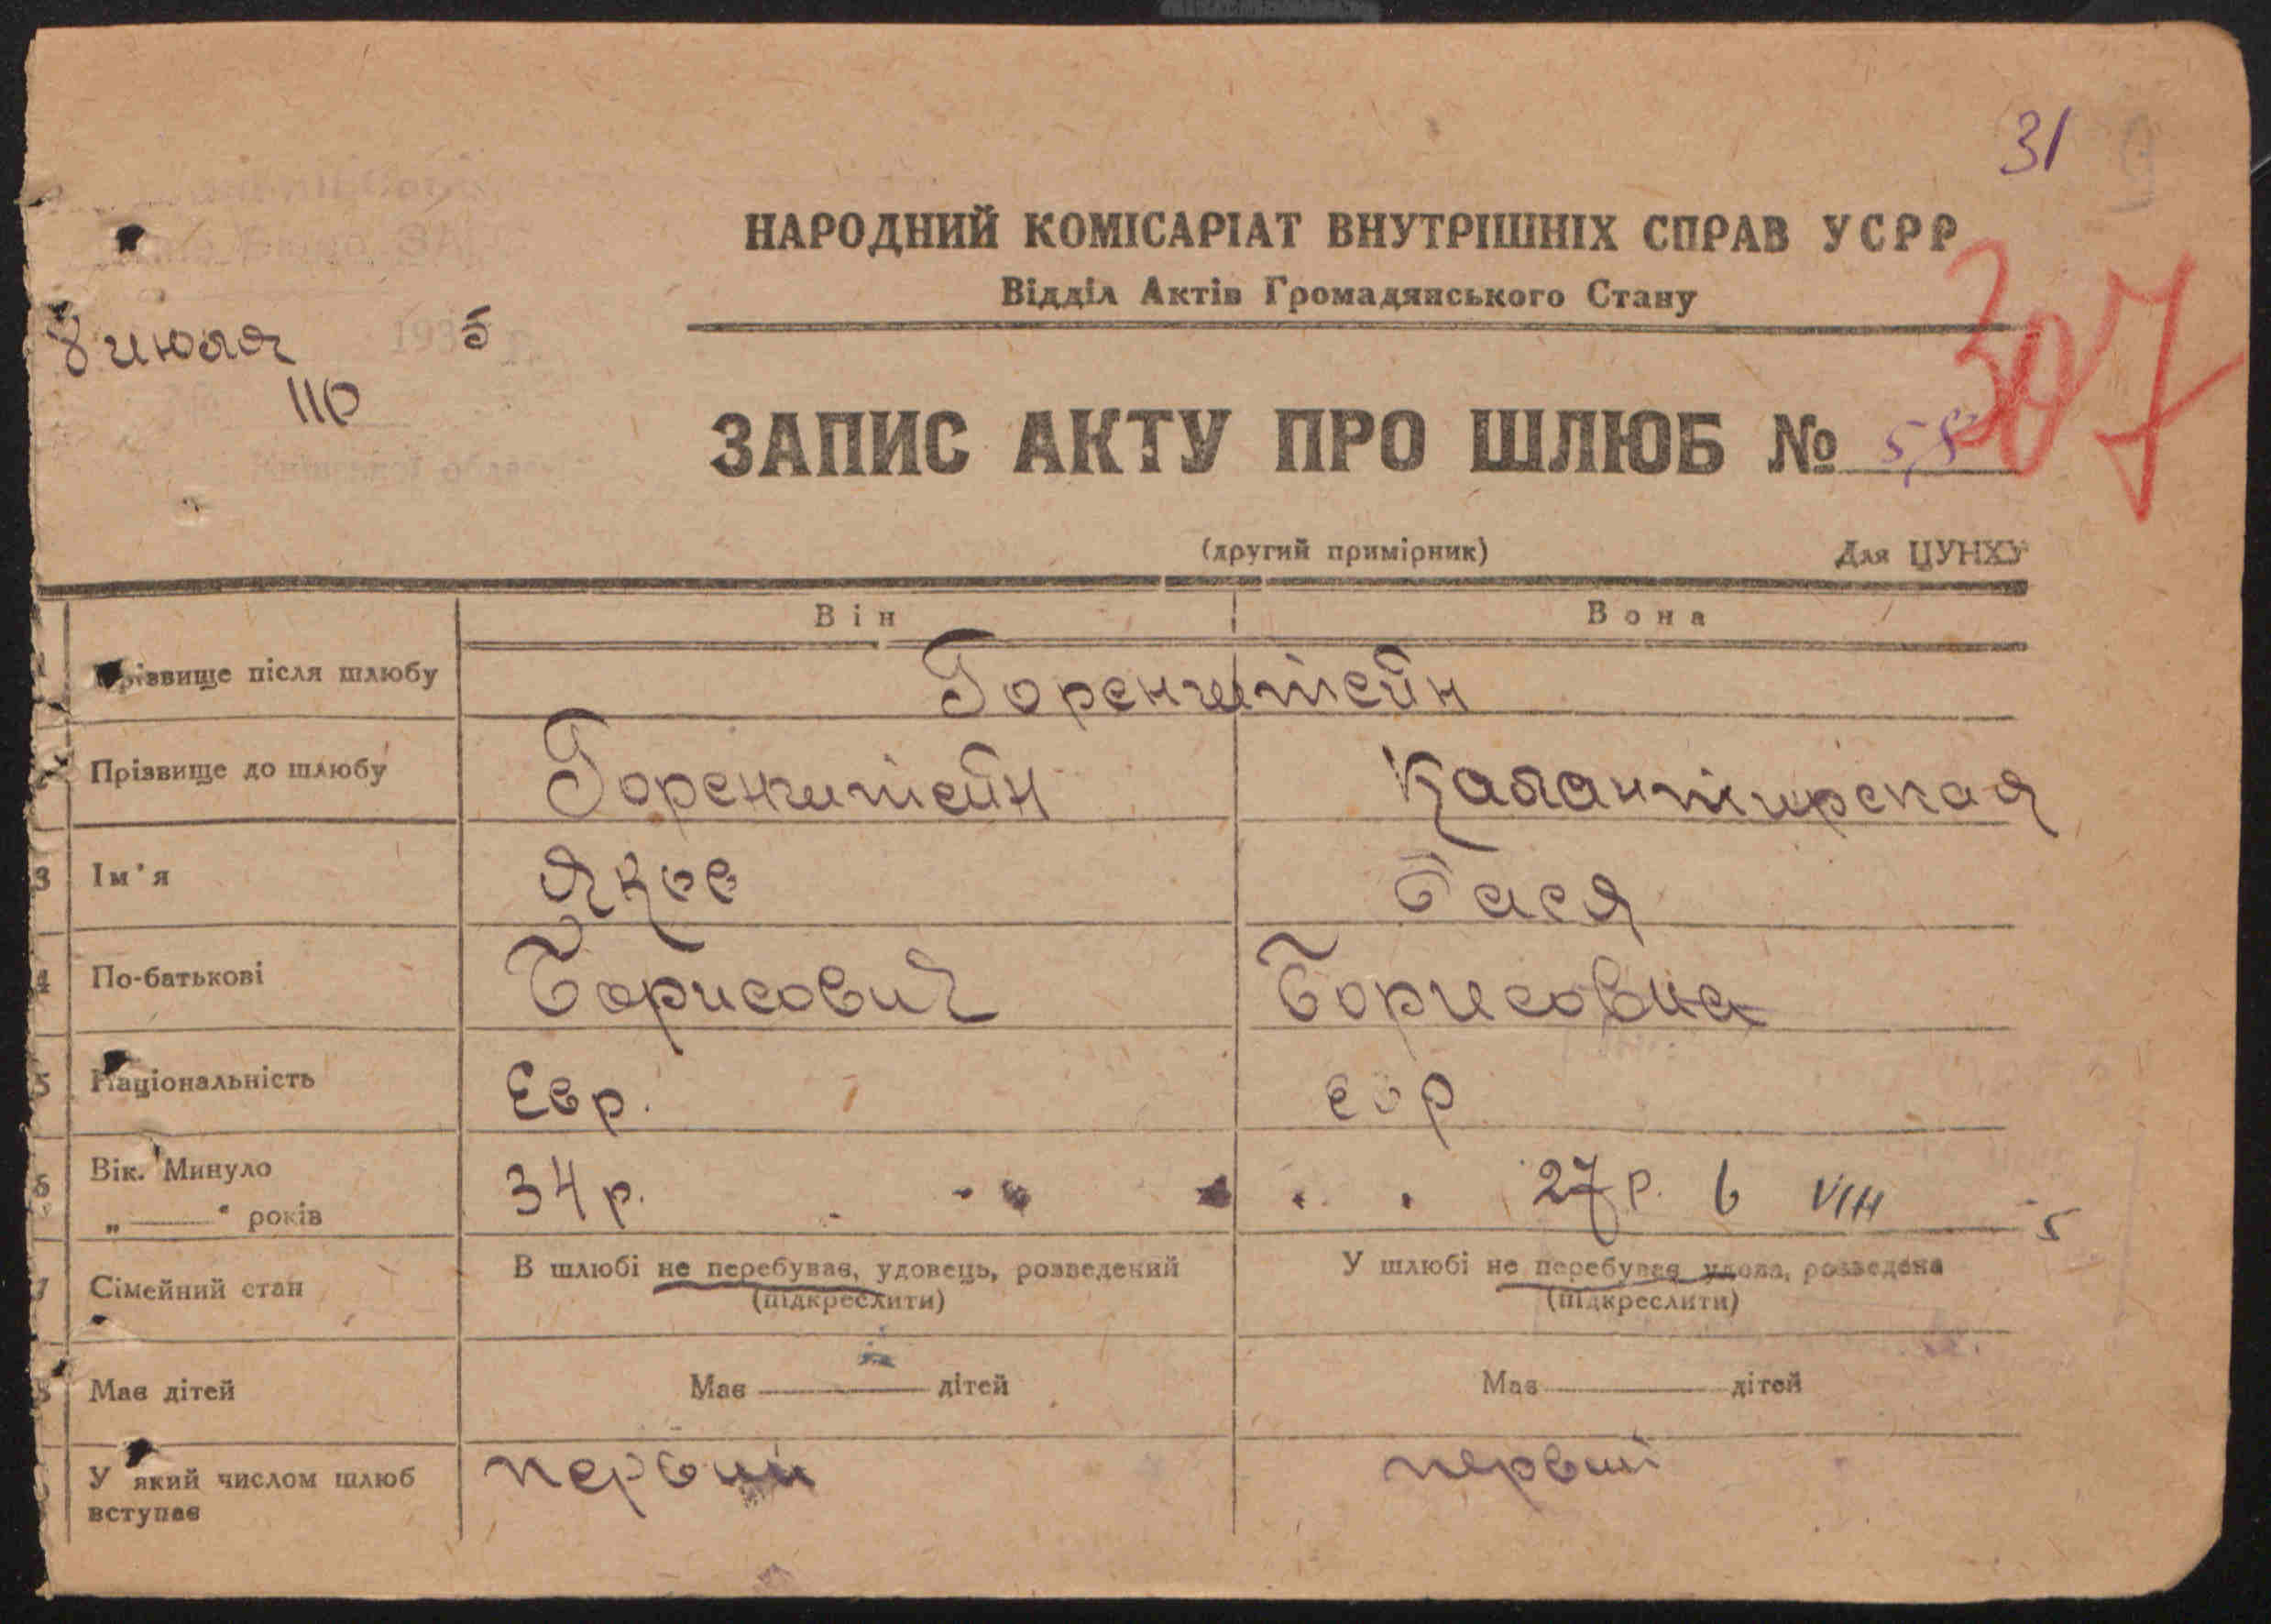 31
НАРОДНИЙ КОМІСАРІАТ ВНУТРІШНІХ СПРАВ УСРР
Відділ Актів Громадянського Стану
8 июля 1935 г.
110
307
ЗАПИС АКТУ ПРО ШЛЮБ № 58
Київської області
(другий примірник) Для ЦУНХУ
Він Вона
Прізвище після шлюбу Горенштейн
Прізвище до шлюбу Горенштейн Калантирская
3 Ім'я Яков Бася
4 По-батькові Борисович Борисовна
5 Національність Евр. евр
6 Вік. Минуло
„ “ років 34 р. 27 р. 6 VIII 5
7 Сімейний стан В шлюбі не перебував, удовець, розведений У шлюбі не перебуває удова, розведена
(підкреслити) (підкреслити)
8 Має дітей Має дітей Має дітей
У який числом шлюб
вступає первый первый